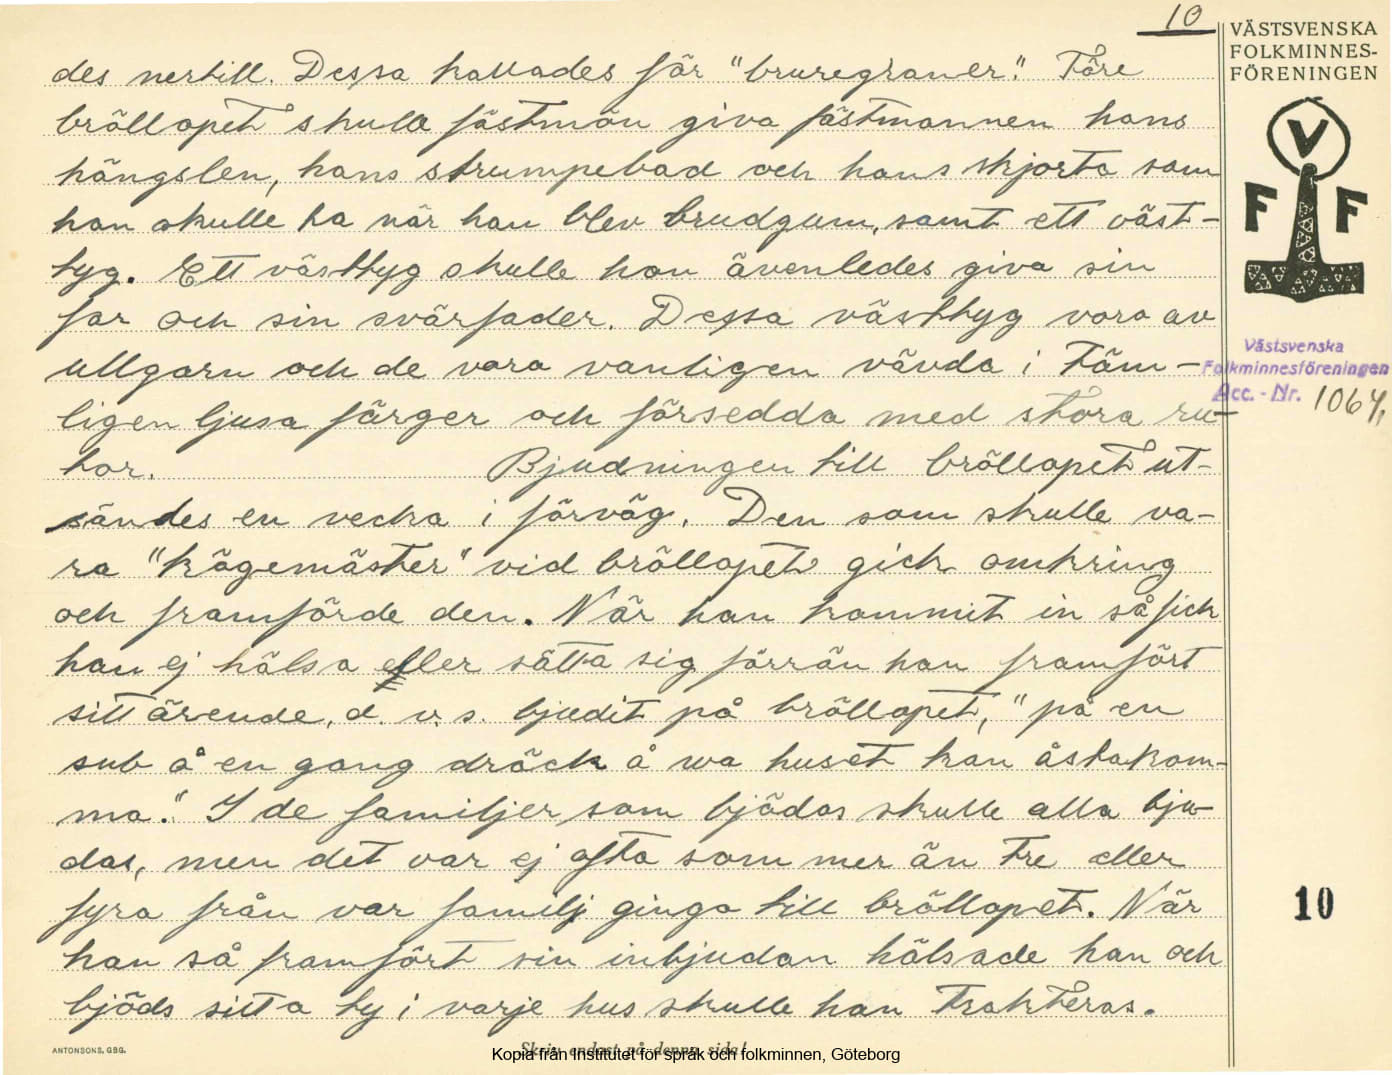 10
VÄSTSVENSKA
FOLKMINNES-
FÖRENINGEN
des nertill. Dessa kallades för "bruregraner". Före
bröllopet skulle fästmön giva fästmannen hans
hängslen, hans strumpebad och hans skjorta som
han skulle ha när han blev brudgum, samt ett väst-
tyg. Ett västtyg skulle hon ävenledes giva sin
far och sin svärfader. Dessa västtyg voro av
ullgarn och de voro vanligen vävda i Täm-
ligen ljusa färger och försedda med stora ru-
tor. Bjudningen till bröllopet ut-
sändes en vecka i förväg. Den som skulle va-
ra "kögemäster" vid bröllopet gick omkring
och framförde den. När han kommit in så fick
han ej hälsa eller sätta sig förrän han framfört
sitt ärende, d. v. s. bjudit på bröllopet, "på en
sub å en gang dräck å wa huset kan åstakom-
ma". I de familjer som bjödos skulle alla bju-
das, men det var ej ofta som mer än tre eller
fyra från var familj gingo till bröllopet. När
han så framfört sin inbjudan hälsade han och
bjöds sitta ty i varje hus skulle han trakteras.
V
F F
Västsvenska
Folkminnesföreningen
Acc. - Nr. 1064,
10
ANTONSONS, GBG.
Skriv endast på denna sida!
Kopia från Institutet för språk och folkminnen, Göteborg